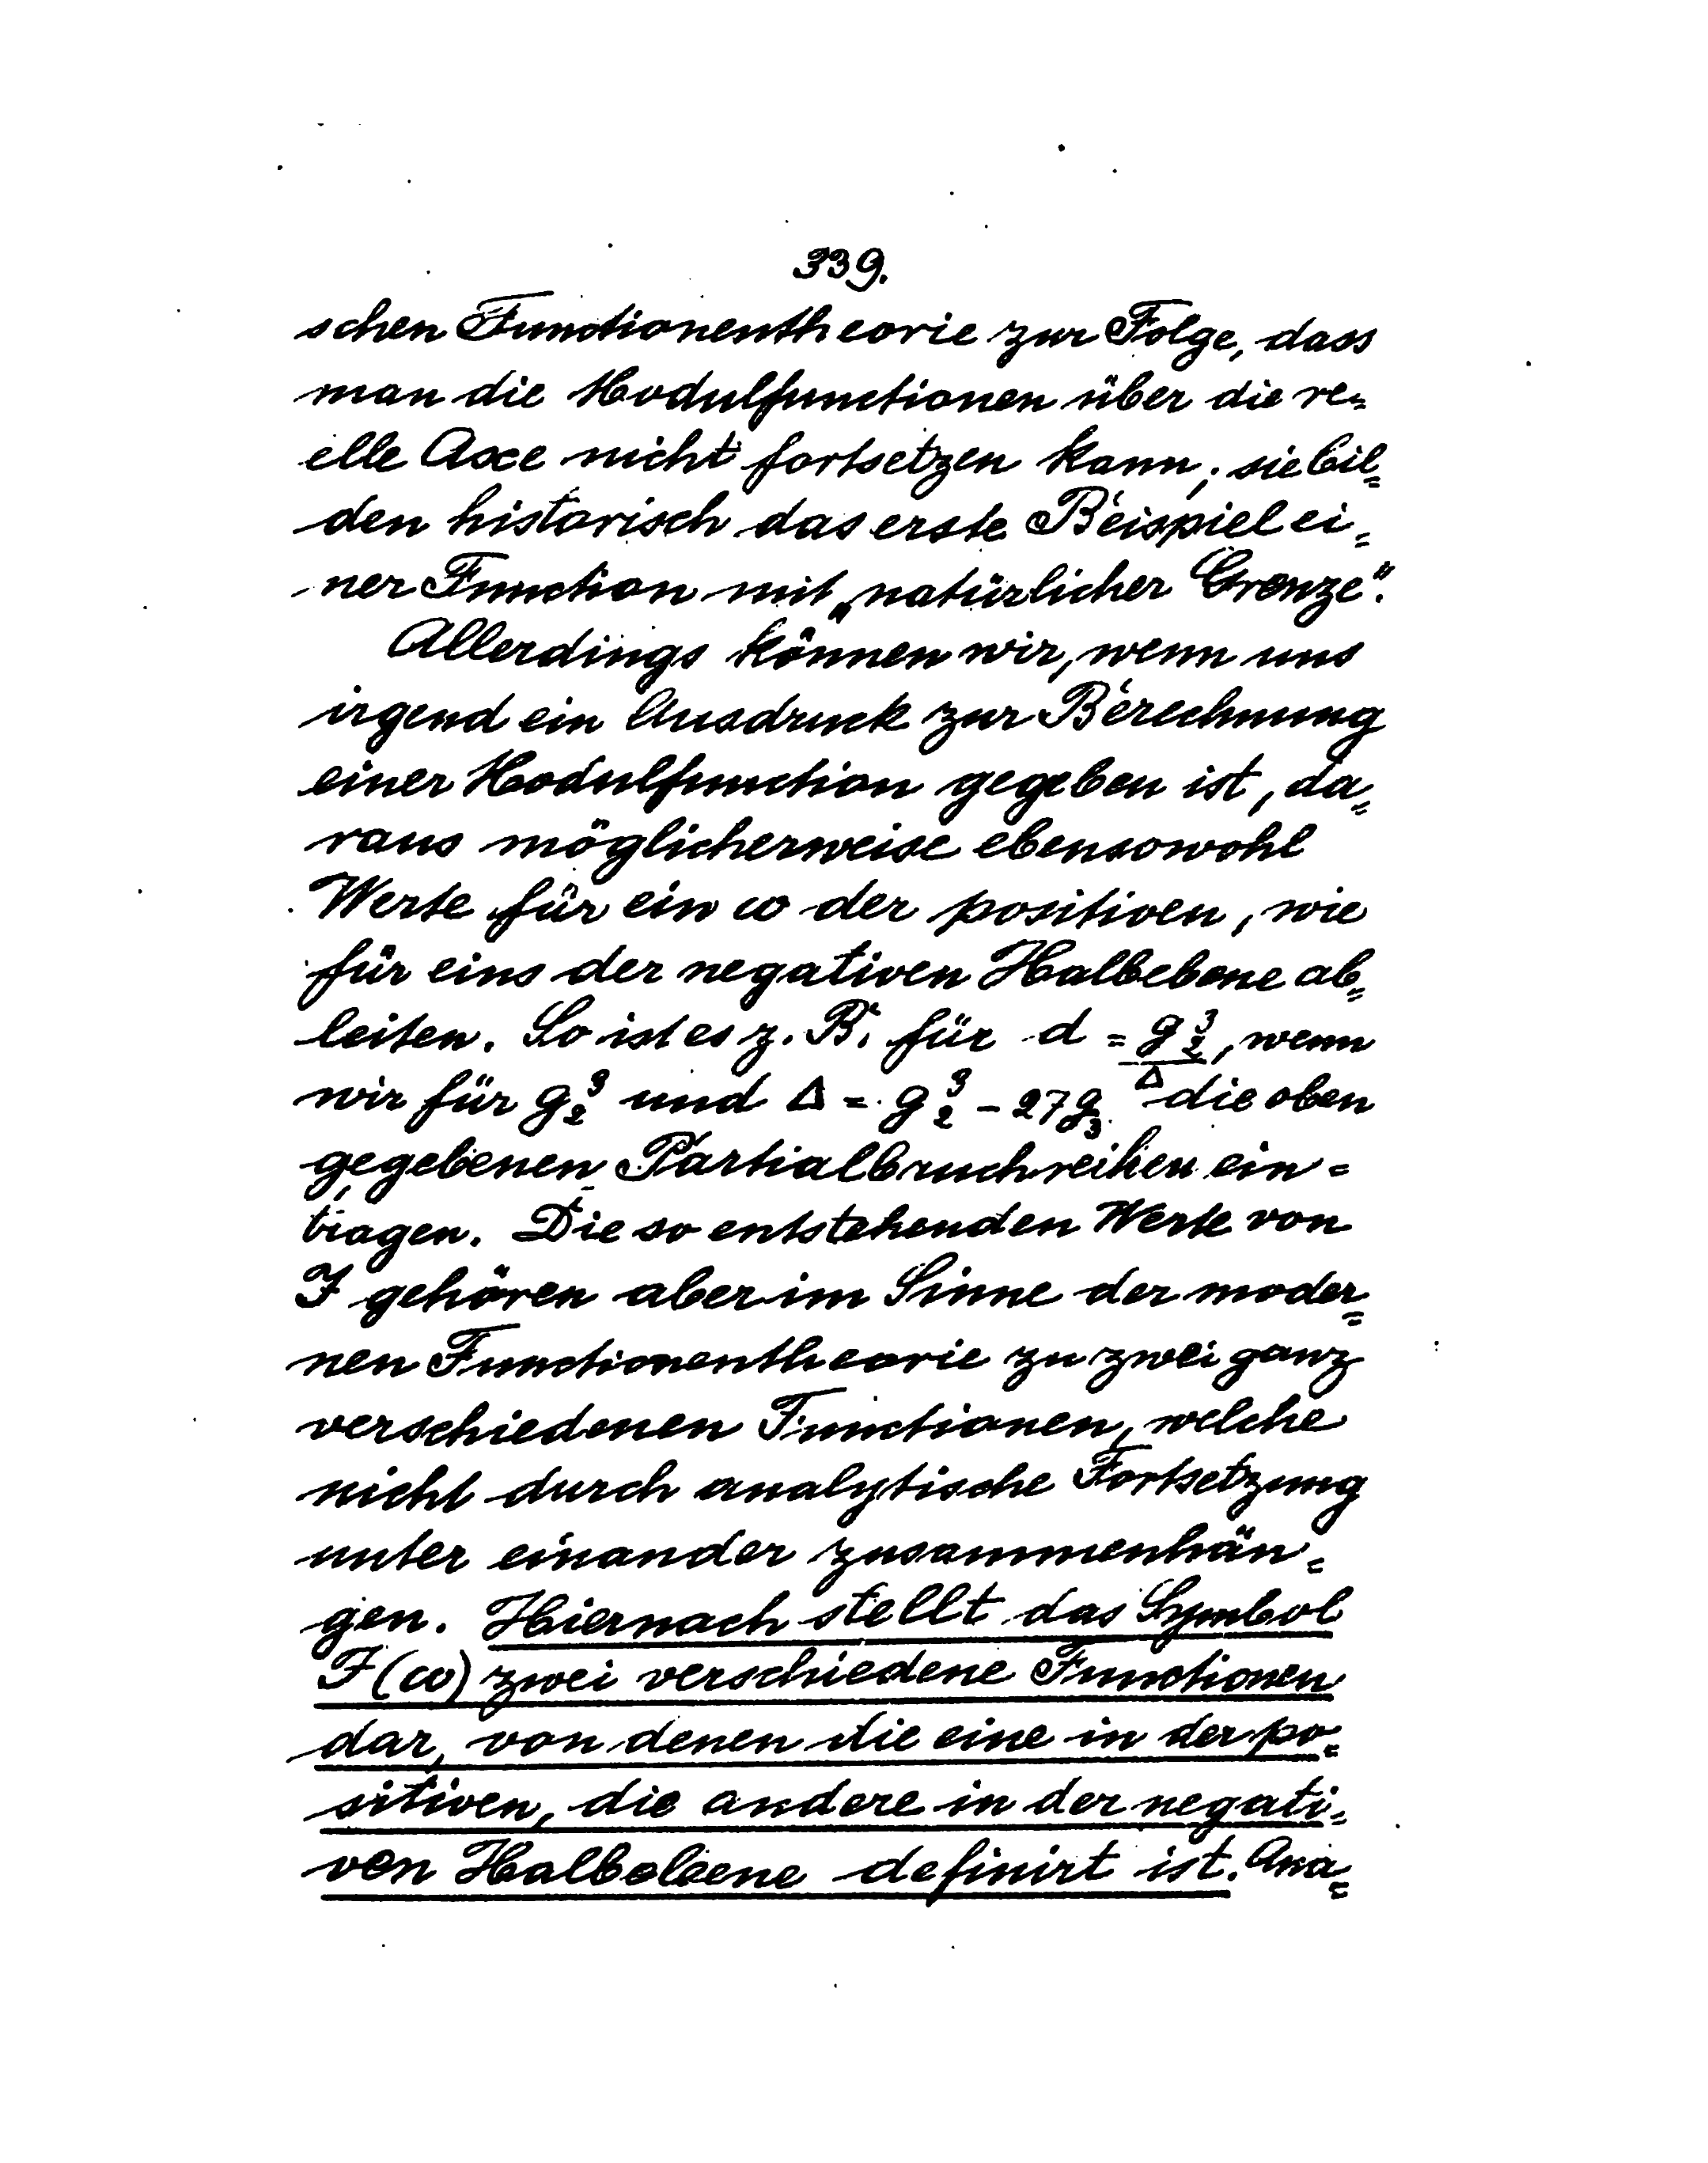 339.
schen Functionentheorie zur Folge, dass
man die Modulfunctionen über die re=
elle Axe nicht fortsetzen kann; sie bil=
den historisch das erste Beispiel ei=
ner Function mit „natürlicher Grenze".
Allerdings können wir, wenn uns
irgend ein Ausdruck zur Berechnung
einer Modulfunction gegeben ist, da=
raus möglicherweise ebensowohl
Werte für ein ω der positiven, wie
für eins der negativen Halbebene ab=
leiten. So ist es z. B. für d = g₂³/Δ, wenn
wir für g₂³ und Δ = g₂³ - 27g₃ die oben
gegebenen Partialbruchreihen ein=
tragen. Die so entstehenden Werte von
J gehören aber im Sinne der moder=
nen Functionentheorie zu zwei ganz
verschiedenen Functionen, welche
nicht durch analytische Fortsetzung
unter einander zusammenhän=
gen. Hiernach stellt das Symbol
J(ω) zwei verschiedene Functionen
dar, von denen die eine in der po=
sitiven, die andere in der negati=
ven Halbebene definirt ist. Ana=